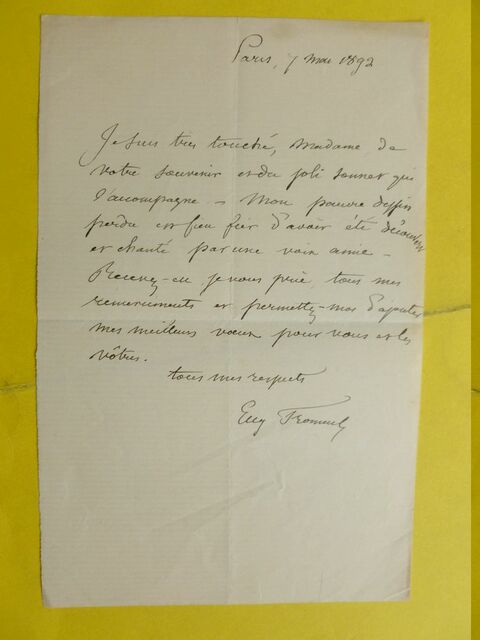 Paris, 7 mai 1892
Je suis très touché, Madame de
votre souvenir et du joli sonnet qui
l'accompagne - Mon pauvre dessin
perdu est bien fier d'avoir été découvert
et chanté par une voix amie -
Recevez-en je vous prie, tous mes
remerciements et permettez-moi d'ajouter
mes meilleurs voeux pour vous et les
vôtres.
tous mes respects
Eug